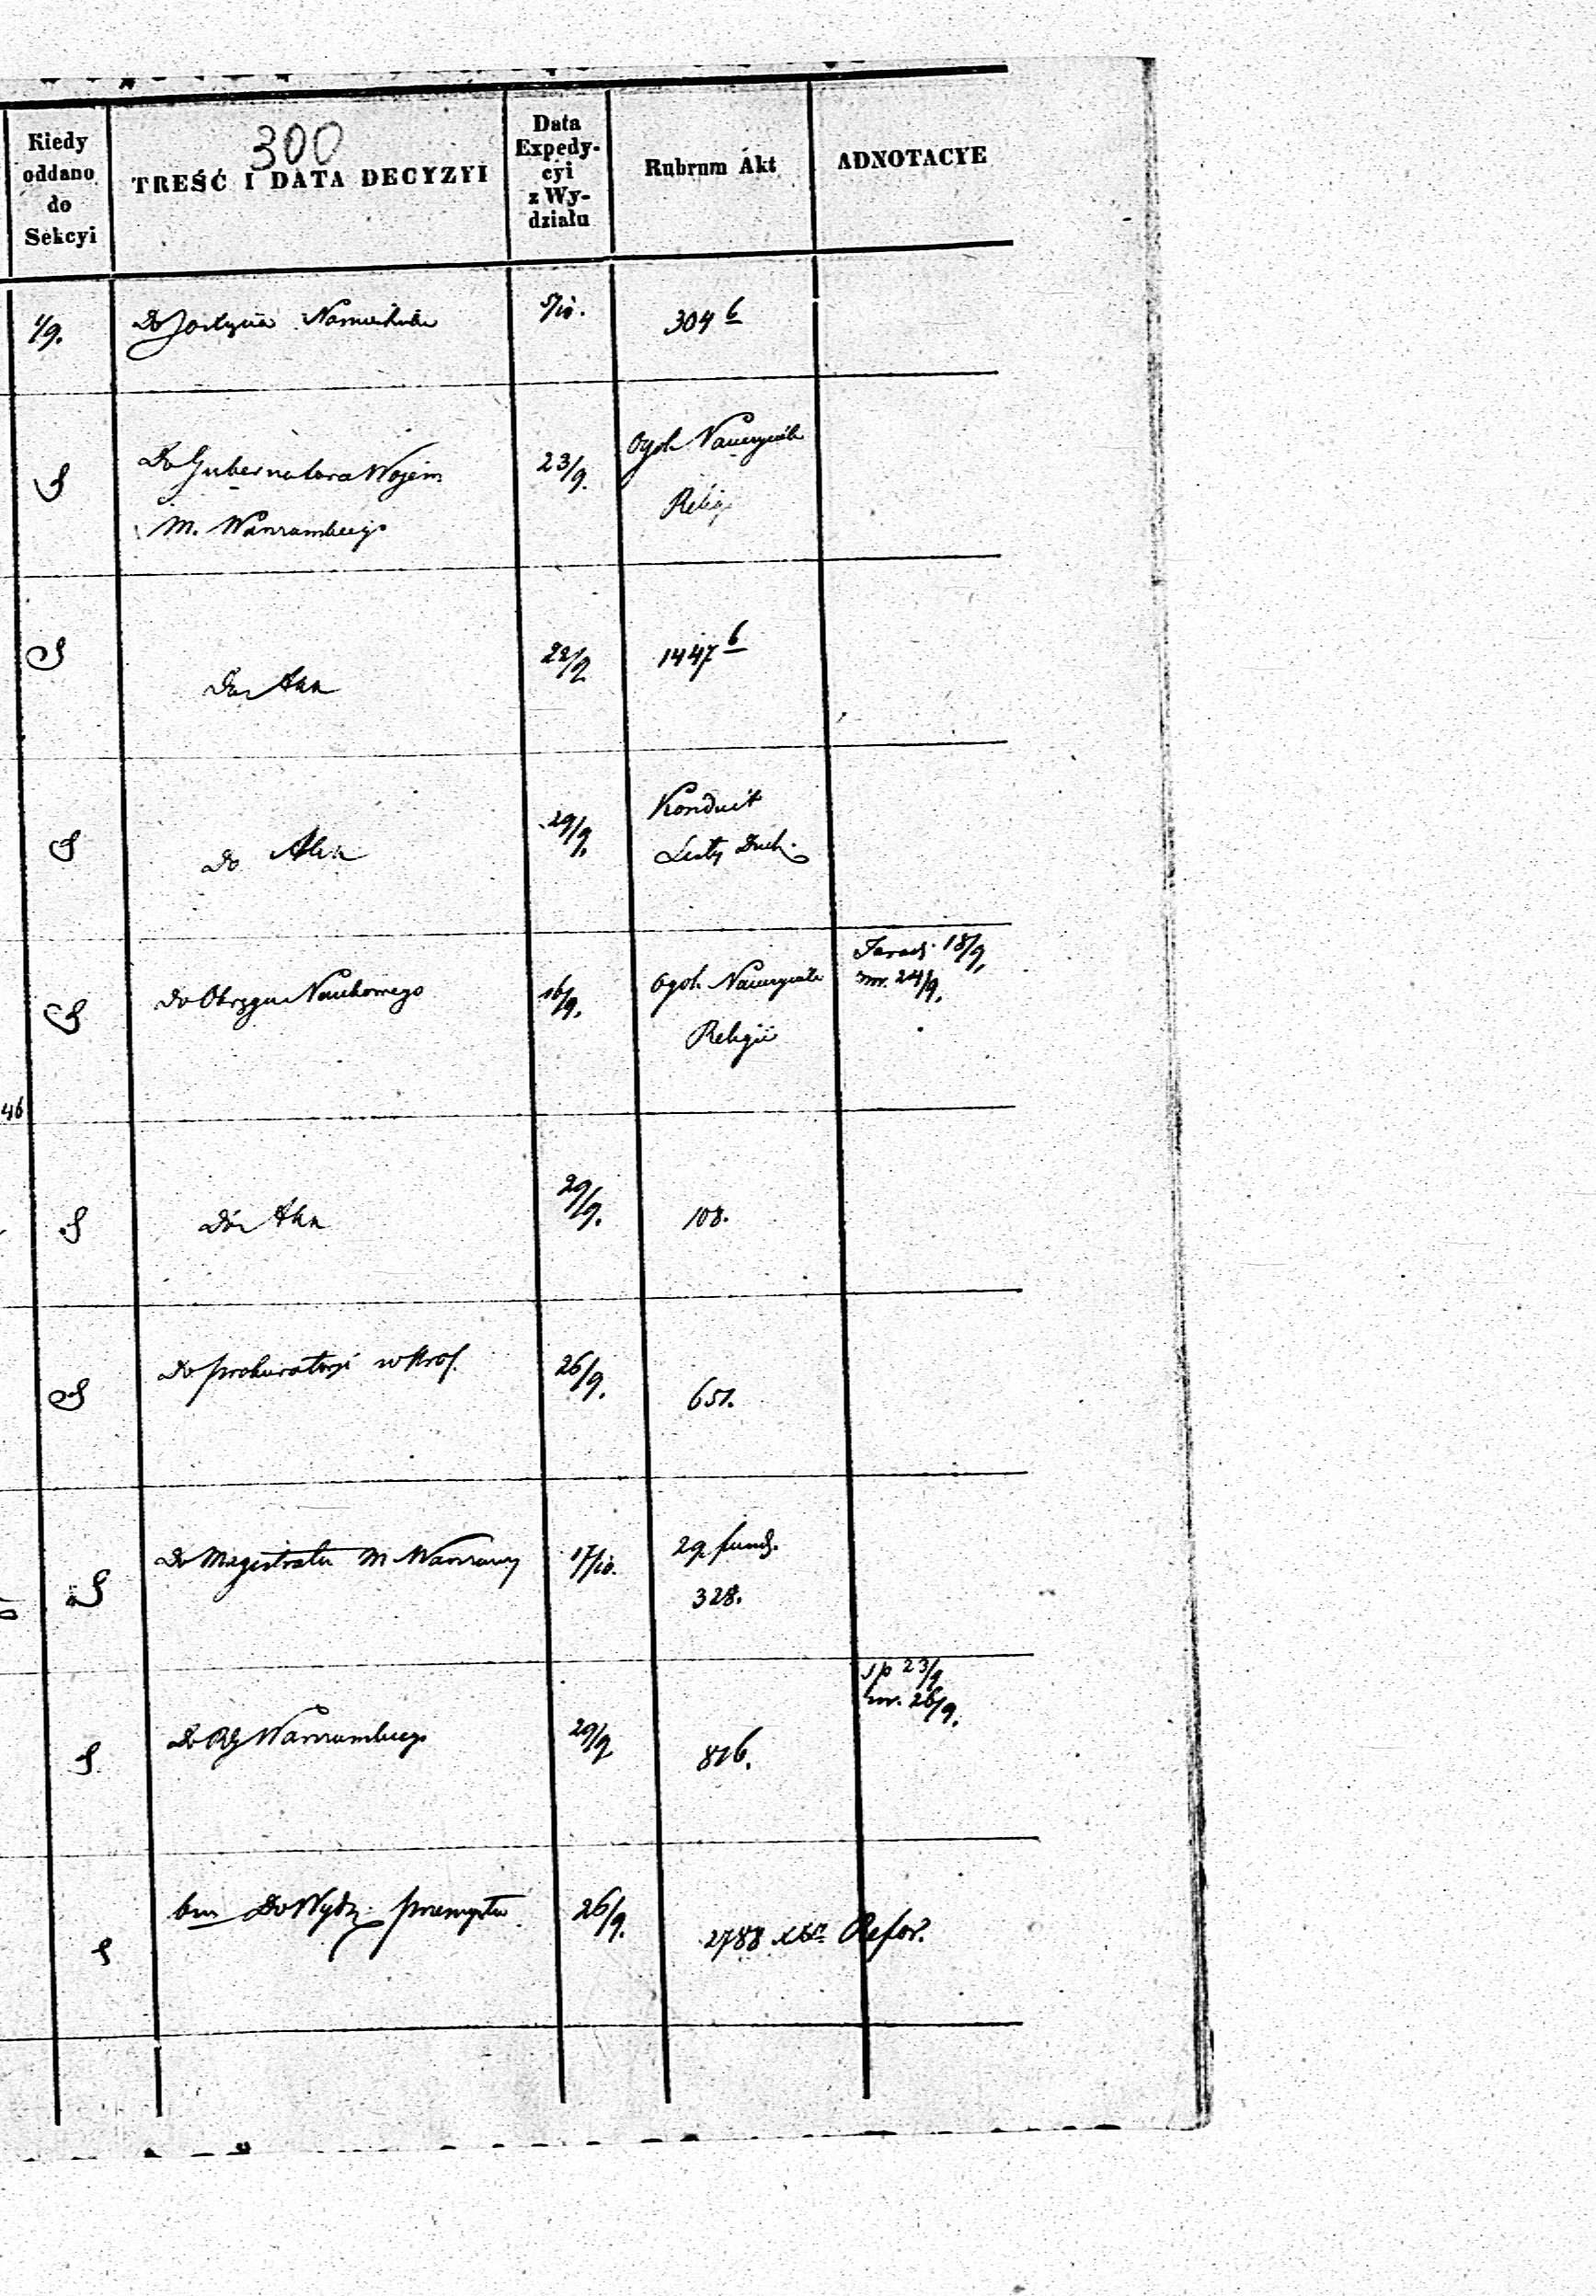 300
Kiedy
oddano
do
Sekcyi
TREŚĆ I DATA DECYZYI
Data
Expedy-
cyi
z Wy-
działu
Rubrum Akt
ADNOTACYE
1/9.
Do
5/10.
304 b
S
Do Gubernatora Wojen
M. Warszawskiego
23/9.
Ogol. Nauczyciele
Religi
S
Do Akt
22/9
1447 b
S
Do Akt
29/9.
Konduit
Listy Duch.
S
Do Okręgu Naukowego
16/9.
Ogol. Nauczyciele
Religii
18/9,
zwr. 24/9.
46
S
Do Akt
29/9.
108.
S
Do prokuratoryi w Król.
26/9.
651.
S
Do Magistratu M Warszawy
17/10.
29 fund.
328.
S
Do RG Warszawskiego
29/9
816.
sp 23/9
zwr. 26/9.
S
bm Do Wydz. przemysłu
26/9.
2788 Refor.